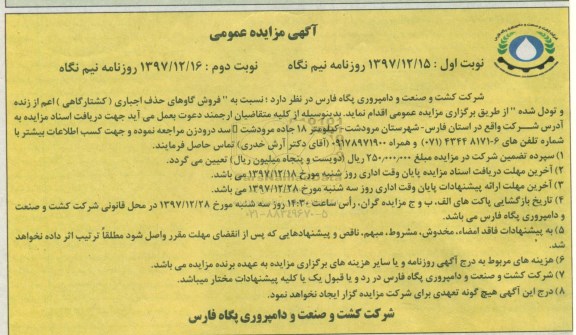 آگهی مزایده عمومی
نوبت اول : ۱۳۹۷/۱۲/۱۵ روزنامه نیم نگاه نوبت دوم : ۱۳۹۷/۱۲/۱۶ روزنامه نیم نگاه
شرکت کشت و صنعت و دامپروری پگاه فارس در نظر دارد ؛ نسبت به " فروش گاوهای حذف اجباری ( کشتارگاهی ) اعم از زنده
و تودل شده " از طریق برگزاری مزایده عمومی اقدام نماید. بدینوسیله از کلیه متقاضیان ارجمند دعوت بعمل می آید جهت دریافت اسناد مزایده به
آدرس شرکت واقع در استان فارس- شهرستان مرودشت- کیلومتر ۱۸ جاده مرودشت سد درودزن مراجعه نموده و جهت کسب اطلاعات بیشتر با
شماره تلفن های ۶-۸۱۷۱ ۴۳۴۴ (۰۷۱) و همراه ۰۹۱۷۸۹۷۱۹۰۰ (آقای دکتر آرش خدری) تماس حاصل فرمایند.
۱) سپرده تضمین شرکت در مزایده مبلغ ۲۵۰,۰۰۰,۰۰۰ ریال (دویست و پنجاه میلیون ریال) تعیین می گردد.
۲) آخرین مهلت دریافت اسناد مزایده پایان وقت اداری روز شنبه مورخ ۱۳۹۷/۱۲/۱۸ می باشد.
۳) آخرین مهلت ارائه پیشنهادات پایان وقت اداری روز سه شنبه مورخ ۱۳۹۷/۱۲/۲۸ می باشد.
۴) تاریخ بازگشایی پاکت های الف، ب و ج مزایده گران، رأس ساعت ۱۴:۳۰ روز سه شنبه مورخ ۱۳۹۷/۱۲/۲۸ در محل قانونی شرکت کشت و صنعت
و دامپروری پگاه فارس می باشد.
۵) به پیشنهادات فاقد امضاء، مخدوش، مشروط، مبهم، ناقص و پیشنهادهایی که پس از انقضای مهلت مقرر واصل شود مطلقاً ترتیب اثر داده نخواهد
شد.
۶) هزینه های مربوط به درج آگهی روزنامه و یا سایر هزینه های برگزاری مزایده به عهده برنده مزایده می باشد.
۷) شرکت کشت و صنعت و دامپروری پگاه فارس در رد و یا قبول یک یا کلیه پیشنهادات مختار میباشد.
۸) درج این آگهی هیچ گونه تعهدی برای شرکت مزایده گزار ایجاد نخواهد نمود.
شرکت کشت و صنعت و دامپروری پگاه فارس